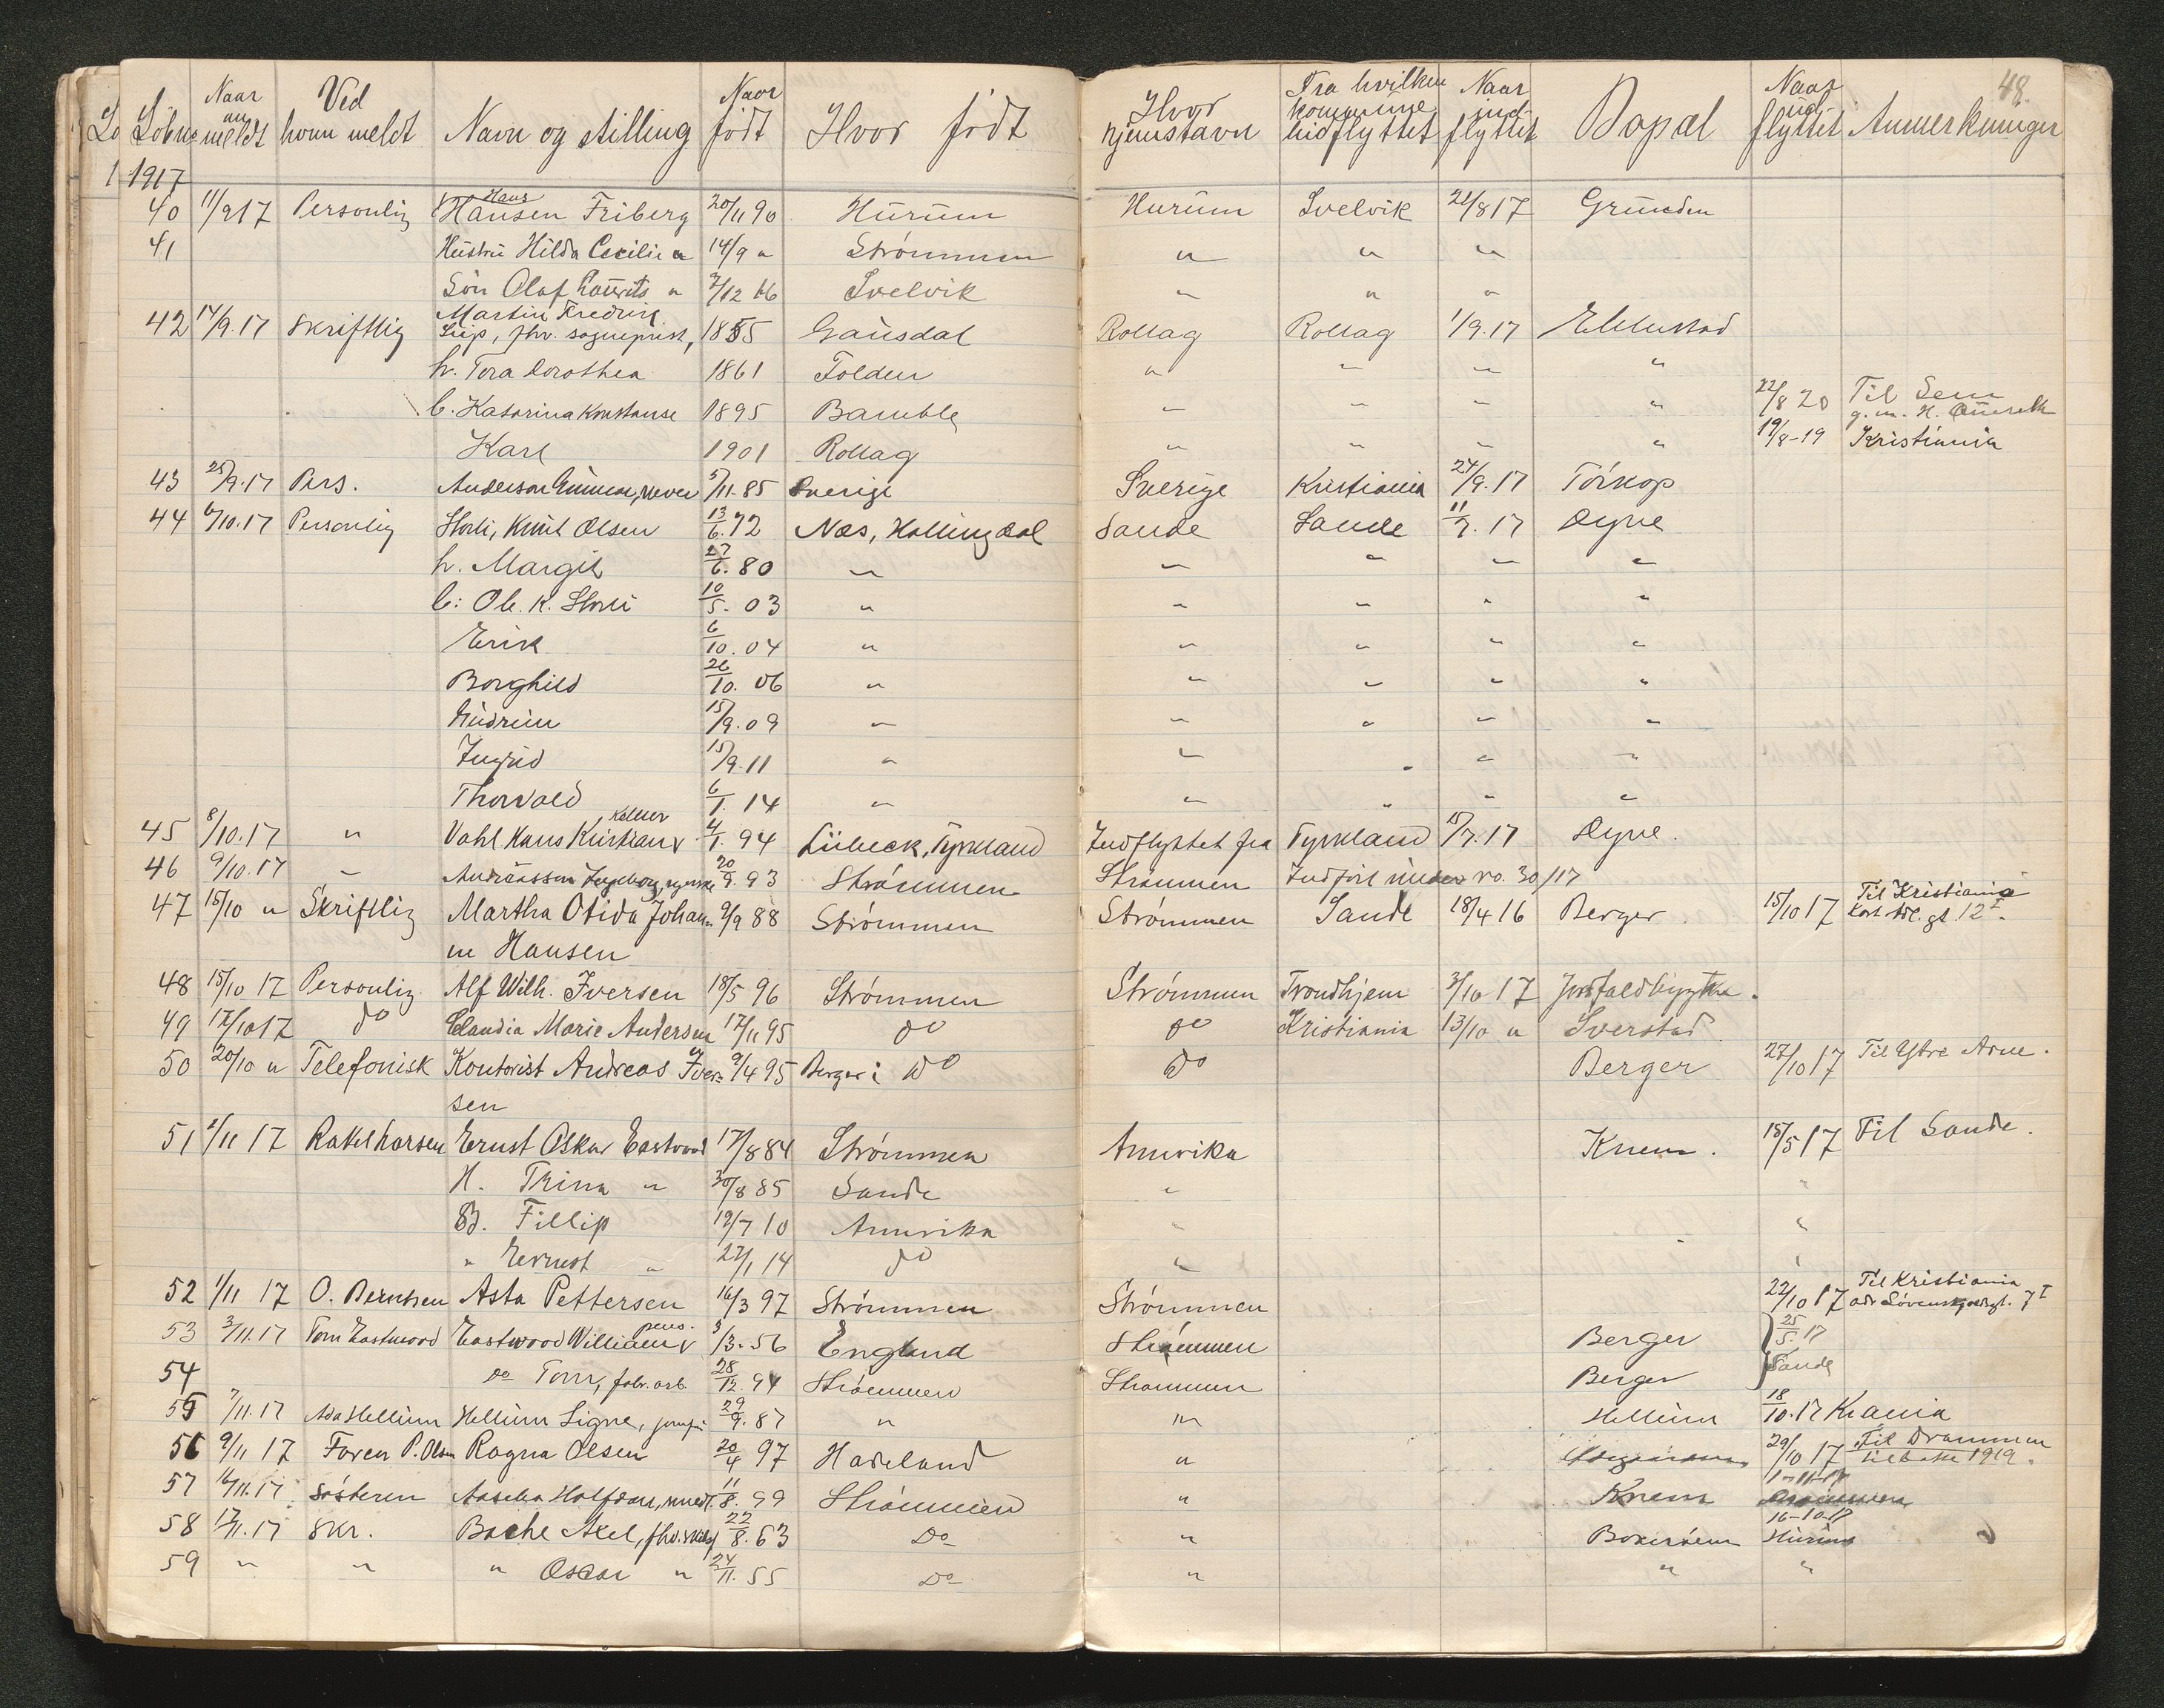 48.
Löbnr Naar anmeldt Ved hvem meldt Navn og stilling Naar født Hvor født Hvor hjemstavn Fra hvilken kommune hidflyttet Naar indflyttet Bopæl Naar udflyttet Anmerkninger
1917
40 11/9 17 Personlig Hansen Hans Friberg 20/11 90 Hurum Hurum Svelvik 21/8 17 Grunden
41 Hustru Hilda Cecilie " 14/9 " Strømmen " " "
Sön Olaf Laurits " 7/12 16 Svelvik " " "
Martin Fredrik
42 14/9.17 Skriftlig fhv. sogneprest, 1855 Gausdal Rollag Rollag 1/9.17
h. Tora Dorothea 1861 Folden " " " "
b. Katarina Konstanse 1895 Bamble " " " " 22/8 20 Til Sem
g. m. H.
Karl 1901 Rollag " " " " 19/8-19 Kristiania
43 25/9.17 Pers. Anderson 5/11.85 Sverige Sverige Kristiania 24/9.17 Tórkop
44 6/10.17 Personlig Storli, Knut Olsen 13/6.72 Næs, Hallingdal Sande Sande 11/7.17 Dyne
h. Margit 27/6.80 " " " " "
b: Ole K. Storli 10/5.03 " " " " "
Erik 6/10.04 " " " " "
Borghild 26/10.06 " " " " "
Gudrun 15/9.09 " " " " "
Ingrid 15/9.11 " " " " "
Thorvald 6/1.14 " " " " "
Kelner
45 8/10.17 " Vahl Hans Kristian v 4/1.94 Lübeck, Tyskland Indflyttet fra Tyskland 15/7.17 Dyne.
46 9/10.17 " Andreassen Ingeborg, 20/9.93 Strømmen Strømmen Indført under no. 30/17
47 15/10 " Skriftlig Martha Otida Johan- 9/9 88 Strømmen Strømmen Sande 18/4 16 Berger 15/10 17 Til Kristiania
ne Hansen
48 15/10 17 Personlig Alf Wilh. Iversen 18/5 96 Strømmen Strømmen Trondhjem 3/10 17
49 17/10 17 do Claudia Marie Andersen 17/11 95 do do Kristiania 13/10 " Sverstad
50 20/10 " Telefonisk Kontorist Andreas Iver- 9/4 95 Berger i do do Berger 27/10 17 Til Ytre Arne.
sen
51 1/11 17 Ernst Oskar Eastwood 17/8 84 Strømmen Amerika Knem. 15/5 17 Til Sande.
H. Trina " 30/8 85 Sande " "
Bd. Fillip 19/7 10 Amerika " "
" Ernust " 27/1 14 do " "
52 1/11 17 O. Berntsen Asta Pettersen 16/3 97 Strømmen Strømmen 22/10 17 Til Kristiania
53 3/11.17 Tom Eastwood Eastwood William v pens. 3/3.56 England Strømmen Berger 25/5.17
54 Do Tom, fabr.arb. 28/12.94 Strømmen Strømmen Berger Sande
55 7/11.17 Ada Hellum Hellum Signe, 29/9.87 " " Hellum 18/10.17 Kr.ania
56 9/11 17 Faren P. Olsen Ragna Olsen 20/4 97 Hadeland " 29/10 17 Til Drammen
tilbake 1919.
57 16/11.17 Søsteren 11/8.99 Strømmen " Knem
58 17/11.17 Skr. Bache Axel, 22/8.63 Do " 16-10-17 Hurum
59 " " " Oscar " 24/11.55 Do " " "